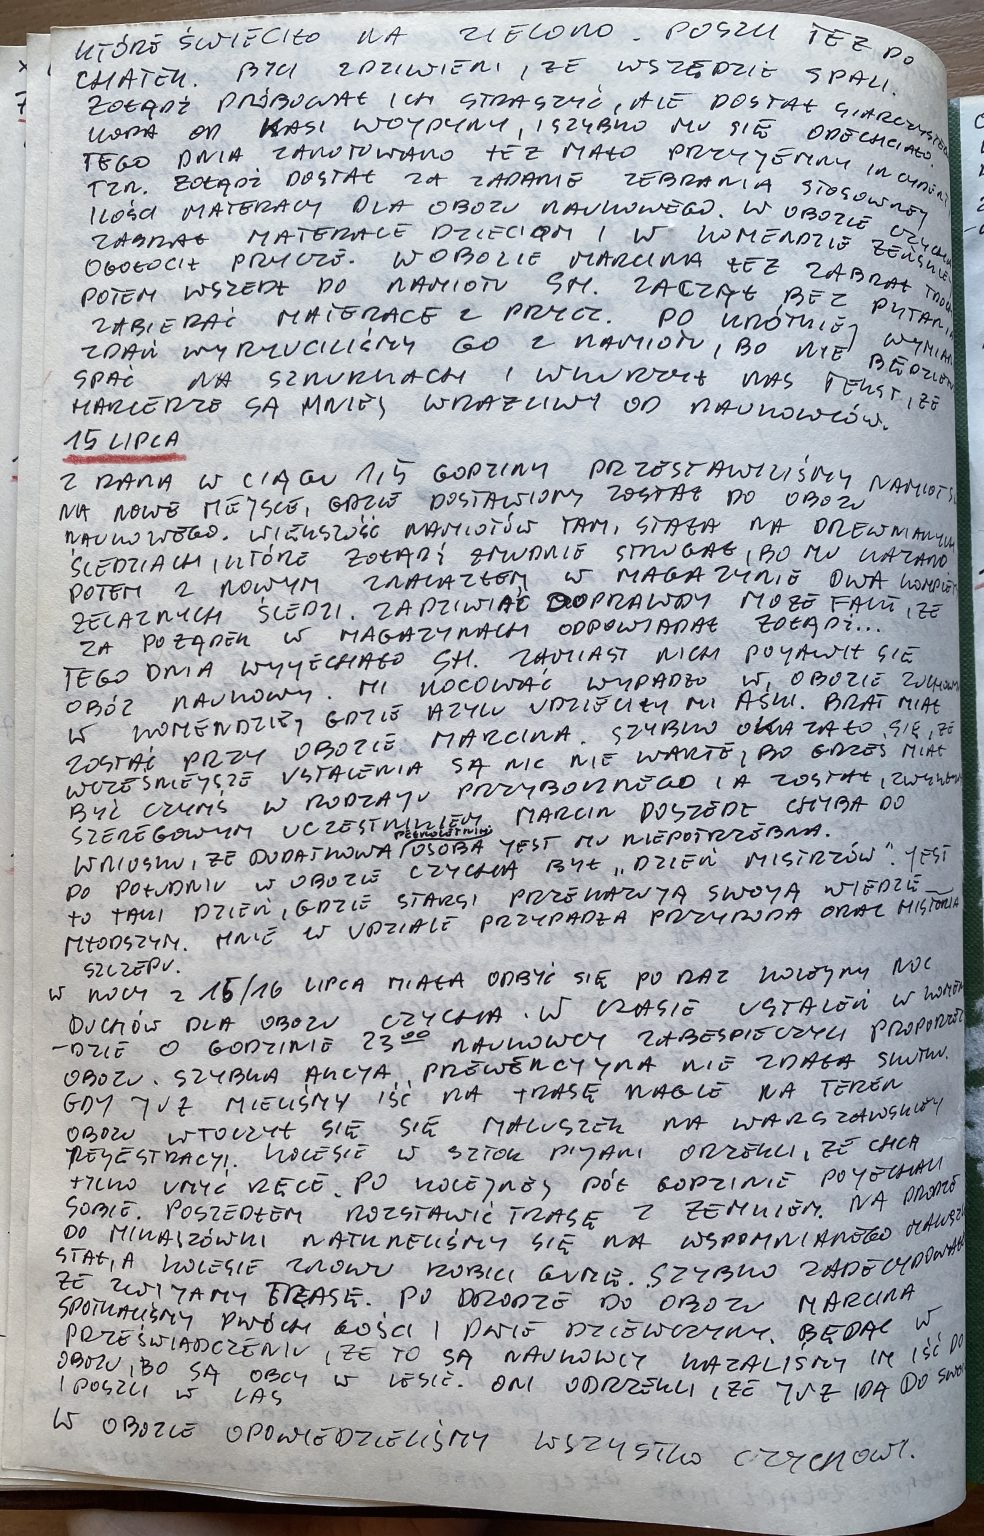 KTÓRE ŚWIECIŁO NA ZIELONO. POSZLI TEŻ DO
CHATEK. BYLI ZDZIWIENI, ŻE WSZĘDZIE SPALI.
ŻOŁĄDŹ PRÓBOWAŁ ICH STRASZYĆ, ALE DOSTAŁ SIARCZYSTEGO
KOPA OD KASI WOYDYNY, I SZYBKO MU SIĘ ODECHCIAŁO.
TEGO DNIA ZANOTOWANO TEŻ MAŁO PRZYJEMNY INCYDENT
TZN. ŻOŁĄDŹ DOSTAŁ ZA ZADANIE ZEBRANIA STOSOWNEJ
ILOŚCI MATERACY DLA OBOZU NAUKOWEGO. W OBOZIE CZYCHA
ZABRAŁ MATERACE DZIECIOM I W KOMENDZIE ŻEŃSKIEJ
OGOŁOCIŁ PRYCZE. W OBOZIE MARCINA TEŻ ZABRAŁ TROCHĘ
POTEM WSZEDŁ DO NAMIOTU SH. ZACZĄŁ BEZ PYTANIA
ZABIERAĆ MATERACE Z PRYCZ. PO KRÓTKIEJ WYMIANIE
ZDAŃ WYRZUCILIŚMY GO Z NAMIOTU, BO NIE BĘDZIEMY
SPAĆ NA SZNURKACH I WKURZYŁ NAS TEKST, ŻE
HARCERZE SĄ MNIEJ WRAŻLIWY OD NAUKOWCÓW.
15 LIPCA
Z RANA W CIĄGU 1,5 GODZINY PRZESTAWILIŚMY NAMIOT SH
NA NOWE MIEJSCE, GDZIE DOSTAWIONY ZOSTAŁ DO OBOZU
NAUKOWEGO. WIĘKSZOŚĆ NAMIOTÓW TAM, STAŁA NA DREWNIANYCH
ŚLEDZIACH, KTÓRE ŻOŁĄDŹ ŻMUDNIE STRUGAŁ, BO MU KAZANO.
POTEM Z NOWYM ZNALAZŁEM W MAGAZYNIE DWA KOMPLETY
ŻELAZNYCH ŚLEDZI. ZADZIWIAĆ DOPRAWDY MOŻE FAKT, ŻE
ZA POŻĄDEK W MAGAZYNACH ODPOWIADAŁ ŻOŁĄDŹ...
TEGO DNIA WYJECHAŁO SH. ZAMIAST NICH POJAWIŁ SIĘ
OBÓZ NAUKOWY. MI NOCOWAĆ WYPADŁO W OBOZIE ZUCHOWYM
W KOMENDZIE, GDZIE AZYLU UDZIELIŁY MI AŚKI. BRAT MIAŁ
ZOSTAĆ PRZY OBOZIE MARCINA. SZYBKO OKAZAŁO SIĘ, ŻE
WCZEŚNIEJSZE USTALENIA SĄ NIC NIE WARTE, BO GRZEŚ MIAŁ
BYĆ CZYMŚ W RODZAJU PRZYBOCZNEGO I A ZOSTAŁ, ZWYKŁYM
SZEREGOWYM UCZESTNIKIEM. MARCIN DOSZEDŁ CHYBA DO
WNIOSKU, ŻE DODATKOWA PEŁNOLETNIA OSOBA JEST MU NIEPOTRZEBNA.
PO POŁUDNIU W OBOZIE CZYCHA BYŁ „DZIEŃ MISTRZÓW". JEST
TO TAKI DZIEŃ, GDZIE STARSI PRZEKAZUJĄ SWOJĄ WIEDZIE
MŁODSZYM. MNIE W UDZIALE PRZYPADŁA PRZYRODA ORAZ HISTORIA
SZCZEPU.
W NOCY Z 15/16 LIPCA MIAŁA ODBYĆ SIĘ PO RAZ KOLEJNY NOC
DUCHÓW DLA OBOZU CZYCHA. W CZASIE USTALEŃ W KOMEN
-DZIE O GODZINIE 23⁰⁰ NAUKOWCY ZABESPIECZYLI PROPORZEC
OBOZU. SZYBKA AKCJA PREWENCYJNA NIE ZDAŁA SKUTKU.
GDY JUŻ MIELIŚMY IŚĆ NA TRASĘ NAGLE NA TEREN
OBOZU WTOCZYŁ SIĘ SIĘ MALUSZEK NA WARSZAWSKIEJ
REJESTRACJI. KOLESIE W SZTOK PIJANI ORZEKLI, ŻE CHCĄ
TYLKO UMYĆ RĘCE. PO KOLEJNEJ PÓŁ GODZINIE POJECHALI
SOBIE. POSZEDŁEM ROZSTAWIĆ TRASĘ Z ZEMKIEM. NA DRODZE
DO MIKASZÓWKI NATKNELIŚMY SIĘ NA WSPOMNIANEGO MALUSZKA
STAŁ, A KOLESIE ZNOWU ROBILI GUMĘ. SZYBKO ZADECYDOWAŁEM
ŻE ZWIJAMY TRASĘ. PO DRODZE DO OBOZU MARCINA
SPOTKALIŚMY DWÓCH GOŚCI I DWIE DZIEWCZYNY. BĘDĄC W
PRZEŚWIADCZENIU, ŻE TO SĄ NAUKOWCY KAZALIŚMY IM IŚĆ DO
OBOZU, BO SĄ OBCY W LESIE. ONI ODRZEKLI, ŻE JUŻ IDĄ DO SWOJEGO
I POSZLI W LAS
W OBOZIE OPOWIEDZIELIŚMY WSZYSTKO CZYCHOWI.